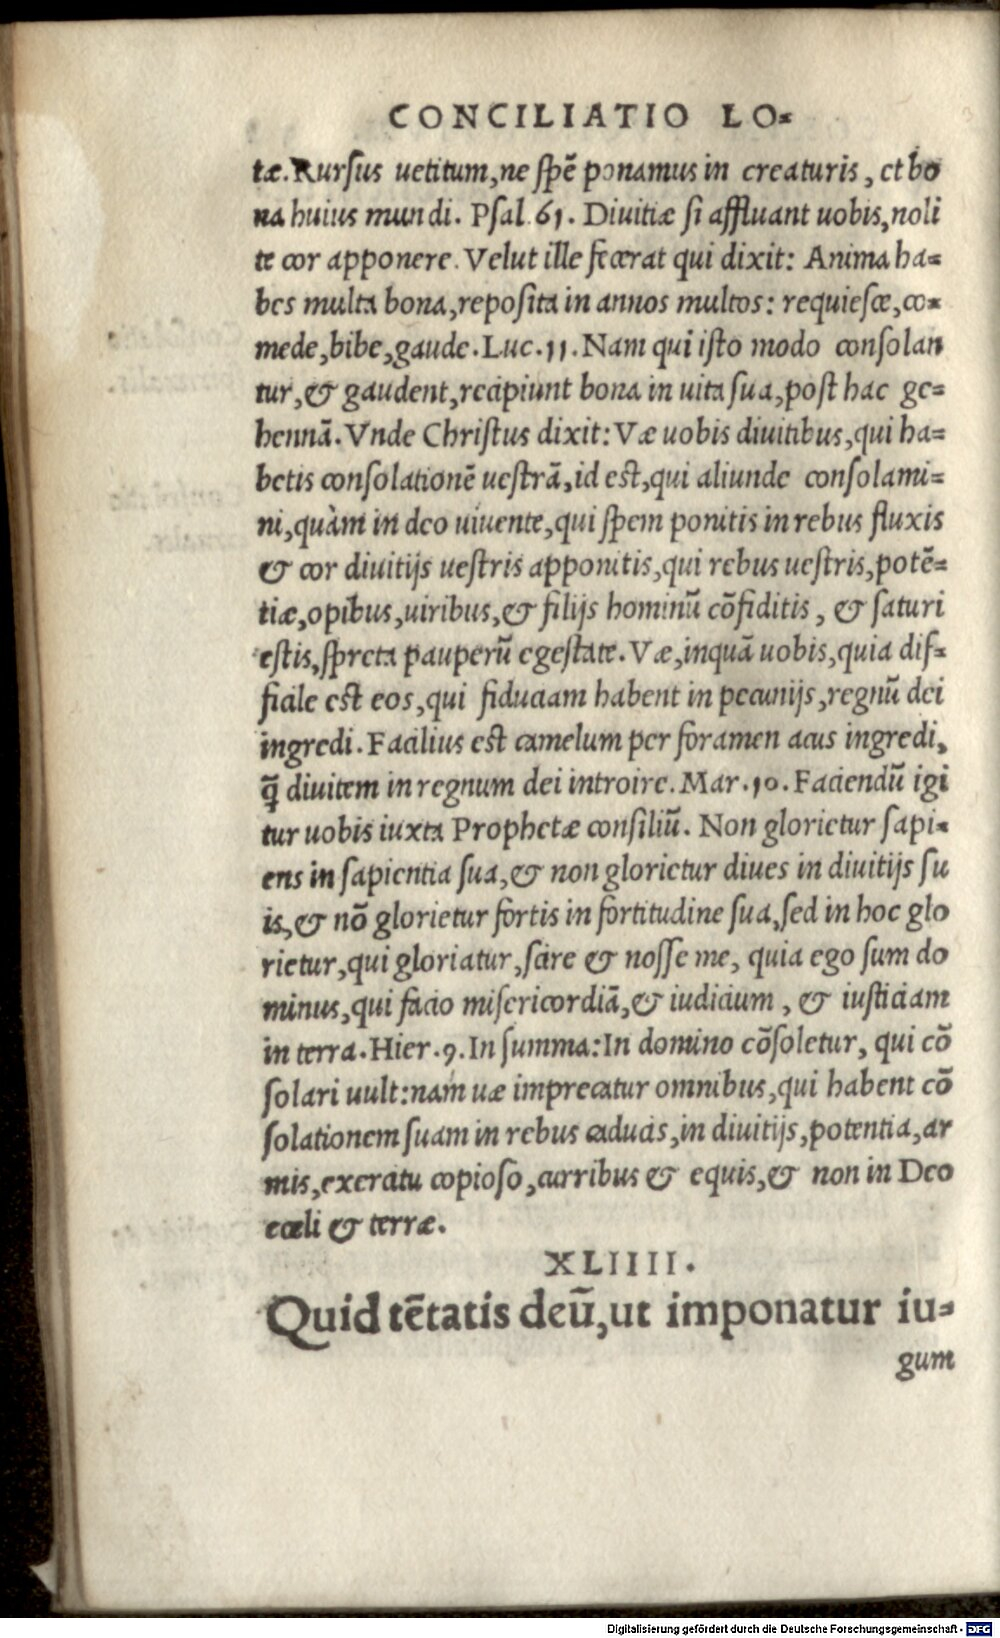 CONCILIATIO LO-
tæ. Rursus uetitum, ne spẽ ponamus in creaturis, et bo
na huius mundi. Psal. 61. Diuitiæ si affluant uobis, noli
te cor apponere. Velut ille fecerat qui dixit: Anima ha-
bes multa bona, reposita in annos multos: requiesce, co-
mede, bibe, gaude. Luc. 11. Nam qui isto modo consolan
tur, & gaudent, recipiunt bona in uita sua, post hac ge-
hennã. Vnde Christus dixit: Væ uobis diuitibus, qui ha-
betis consolationẽ uestrã, id est, qui aliunde consolami-
ni, quàm in deo uiuente, qui spem ponitis in rebus fluxis
& cor diuitijs uestris apponitis, qui rebus uestris, potẽ-
tiæ, opibus, uiribus, & filijs hominũ cõfiditis, & saturi
estis, spreta pauperũ egestate. Væ, inquã uobis, quia dif-
ficile est eos, qui fiduciam habent in pecunijs, regnũ dei
ingredi. Facilius est camelum per foramen acus ingredi,
q̃ diuitem in regnum dei introire. Mar. 10. Faciendũ igi
tur uobis iuxta Prophetæ consiliũ. Non glorietur sapi-
ens in sapientia sua, & non glorietur diues in diuitijs su
is, & nõ glorietur fortis in fortitudine sua, sed in hoc glo
rietur, qui gloriatur, scire & nosse me, quia ego sum do
minus, qui facio misericordiã, & iudicium, & iusticiam
in terra. Hier. 9. In summa: In domino cõsoletur, qui cõ
solari uult: nam uæ imprecatur omnibus, qui habent cõ
solationem suam in rebus caducis, in diuitijs, potentia, ar
mis, exercitu copioso, curribus & equis, & non in Deo
cœli & terræ.
XLIIII.
Quid tẽtatis deũ, ut imponatur iu-
gum
Digitalisierung gefördert durch die Deutsche Forschungsgemeinschaft - DFG